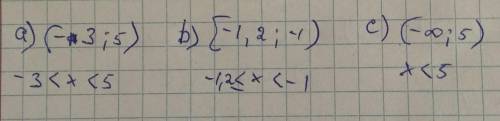 a) (-3; 5) b) [-1,2; -1) c) (-∞; 5)
-3 < x < 5 -1,2 ≤ x < -1 x < 5